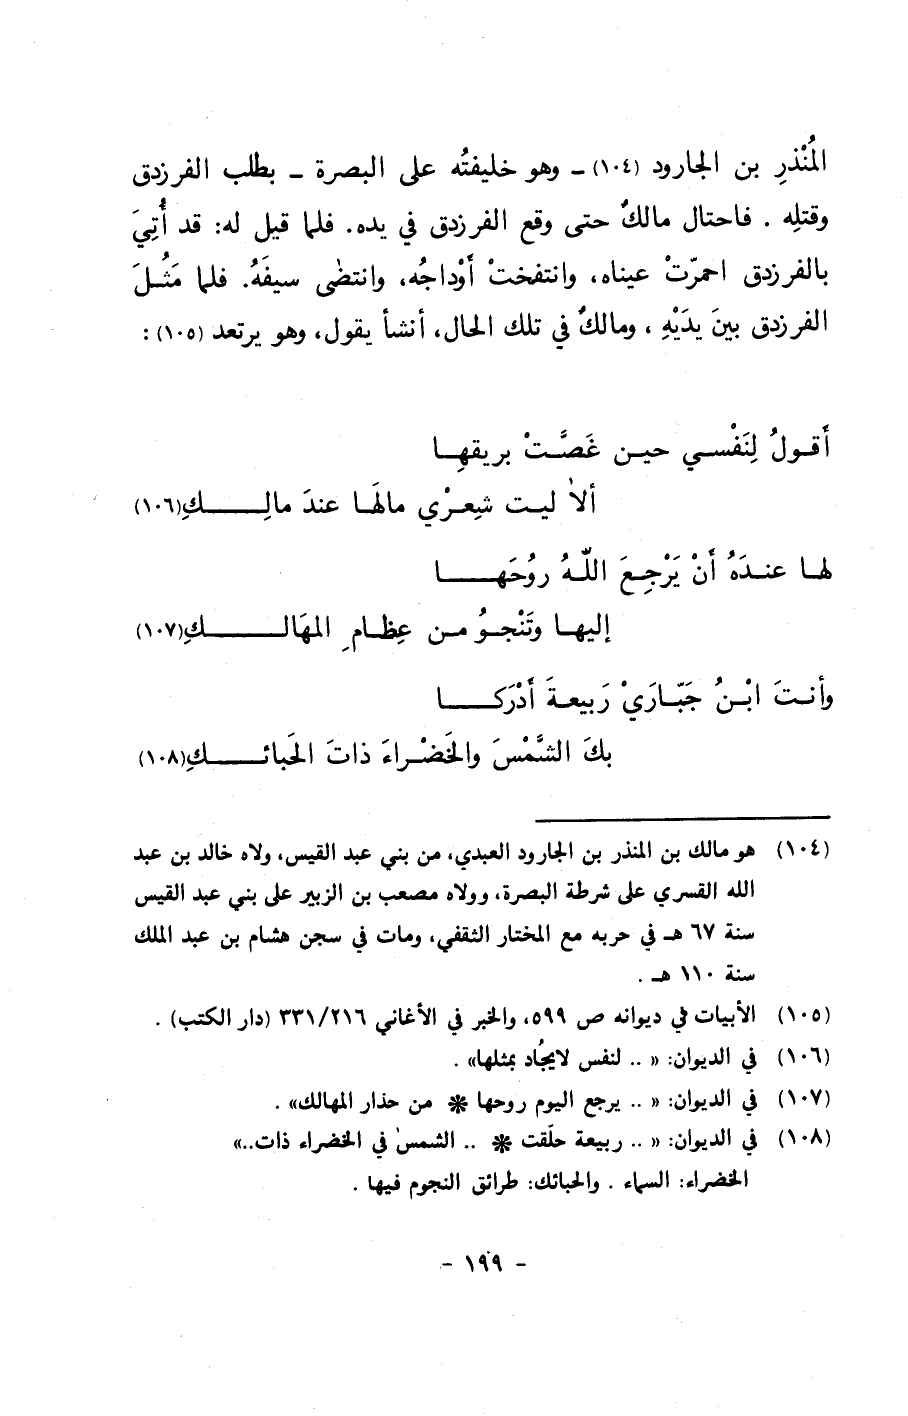 المُنْذرِ بن الجارود (١٠٤) ــ وهو خليفتُه على البصرة ــ بطلب الفرزدق
وقتلِه . فاحتال مالكٌ حتى وقع الفرزدق في يده. فلما قيل له: قد أُتِيَ
بالفرزدق احمرّتْ عيناه، وانتفختْ أَوْداجُه، وانتضٰى سيفَهُ. فلما مَثُـلَ
الفرزدق بينَ يدَيْهِ ، ومالكٌ في تلك الحال، أنشأ يقول، وهو يرتعد (١٠٥) :
أَقـولُ لِنَفْسـي حيـن غَصَّـتْ بريقهـا
ألاٰ ليـت شِعـرْي مالَهـا عندَ مالِـــــكِ(١٠٦)
لهـا عنـدَهُ أَنْ يَرْجِـعَ اللّـهُ روُحَهـــــا
إليهـا وتَنْجـوُ مـن عِظـامِ المهَالـــــكِ(١٠٧)
وأنـتَ ابْـنُ جَبّـاريْ رَبيعـةَ أَدْرَكـــــا
بكَ الشَّمْـسَ والخَضْـراءَ ذاتَ الحَبائـــــكِ(١٠٨)
(١٠٤) هو مالك بن المنذر بن الجارود العبدي، من بني عبد القيس، ولاه خالد بن عبد
الله القسري على شرطة البصرة، وولاه مصعب بن الزبير على بني عبد القيس
سنة ٦٧ هـ في حربه مع المختار الثقفي، ومات في سجن هشام بن عبد الملك
سنة ١١٠ هـ .
(١٠٥) الأبيات في ديوانه ص ٥٩٩، والخبر في الأغاني ٣٣١/٢١٦ (دار الكتب) .
(١٠٦) في الديوان: « .. لنفس لايجُاد بمثلها» .
(١٠٧) في الديوان: « .. يرجع اليوم روحها * من حذار المهالك» .
(١٠٨) في الديوان: « .. ربيعة حلّقت * .. الشمسُ في الخضراء ذات..»
الخضراء: السماء . والحبائك: طرائق النجوم فيها .
- ١٩٩ -